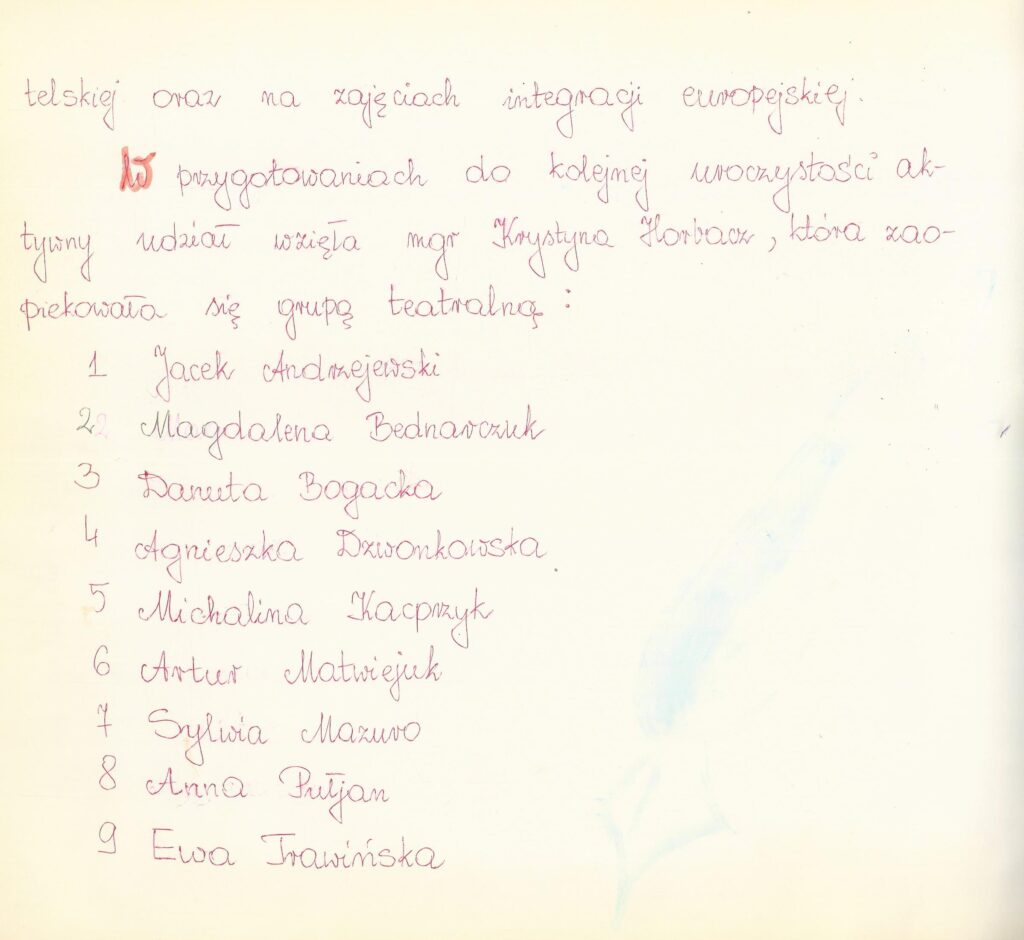 telskiej oraz na zajęciach integracji europejskiej.
W przygotowaniach do kolejnej uroczystości ak-
tywny udział wzięła mgr Krystyna Horbacz, która zao-
piekowała się grupą teatralną :
1 Jacek Andrzejewski
2 Magdalena Bednarczuk
3 Danuta Bogacka
4 Agnieszka Dzwonkowska
5 Michalina Kacprzyk
6 Artur Matwiejuk
7 Sylwia Mazuro
8 Anna Putjan
9 Ewa Trawińska